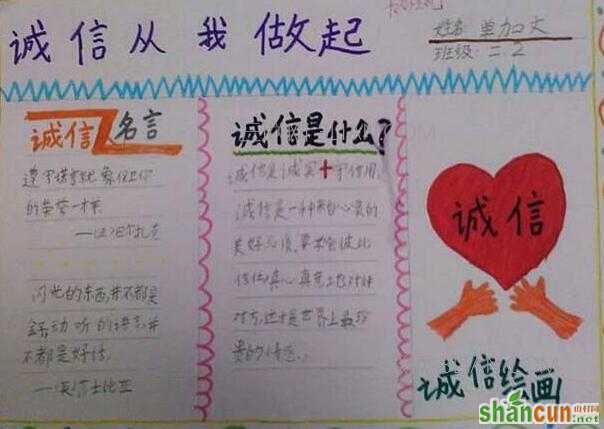 诚信从我做起
姓名:单加文
班级:二.2
诚信名言
遵守诺言就象保卫你
的荣誉一样
——巴尔扎克
闪光的东西,并不都是
金子,动听的语言,并
不都是好话。
——莎士比亚
诚信是什么?
诚信是诚实+守信用,
诚信是一种
美好品质,要学会彼此
信任,真心真意
对方,这才是世界上最珍
贵的情感。
诚信
诚信绘画
shancun
山村网
.net